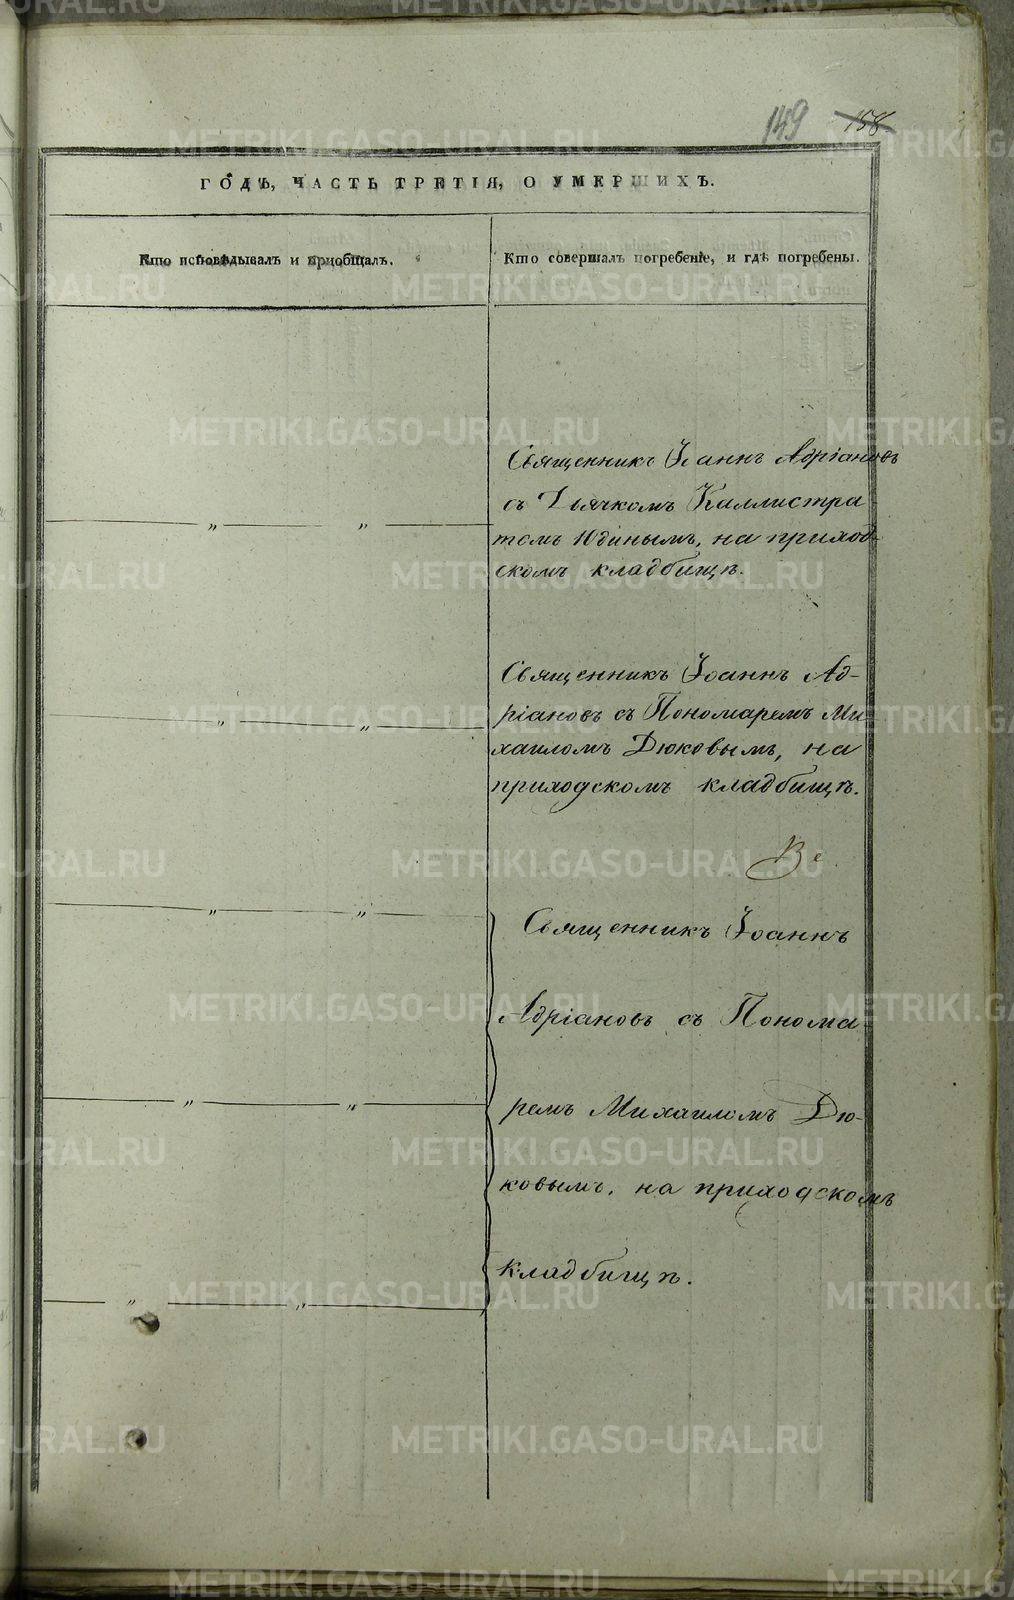 149 158
ГОДЪ, ЧАСТЬ ТРЕТІЯ, О УМЕРШИХЪ.
Кто исповѣдывалъ и приобщалъ.
Кто совершалъ погребеніе, и гдѣ погребены.
Священникъ Іоаннъ Адріановъ
съ Дьячкомъ Каллистра-
томъ Юдинымъ, на приход-
скомъ кладбищѣ.
Священникъ Іоаннъ Ад-
ріановъ съ Пономаремъ Ми
хаиломъ Дюковымъ, на
приходскомъ кладбищѣ.
Священникъ Іоаннъ
Адріановъ съ Понома-
ремъ Михаиломъ Дю-
ковымъ, на приходскомъ
кладбищѣ.
METRIKI.GASO-URAL.RU